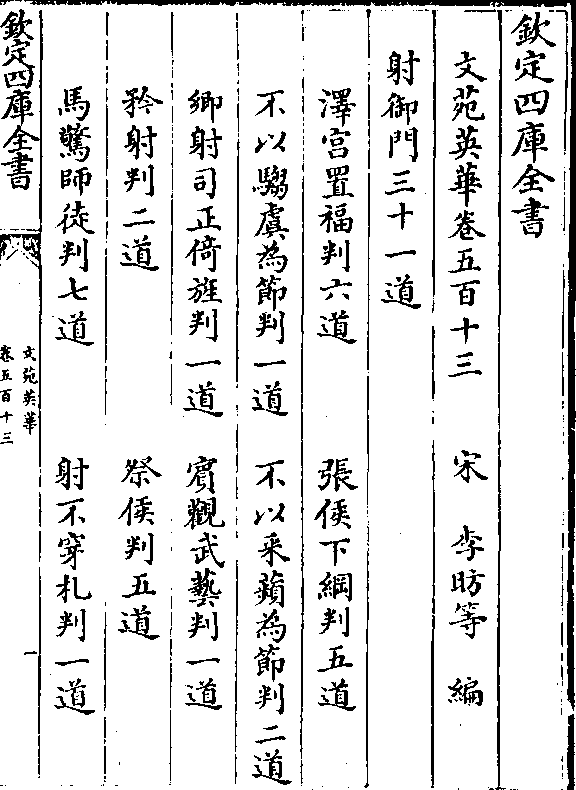 欽定四庫全書
文苑英華卷五百十三 宋 李昉等 編
射御門三十一道
澤宫置福判六道 張侯下綱判五道
不以騶虞為節判一道 不以采蘋為節判二道
鄉射司正倚旌判一道 賔觀武藝判一道
矜射判二道 祭侯判五道
馬驚師徒判七道 射不穿札判一道
欽定四庫全書
文苑英華
卷五百十三
一